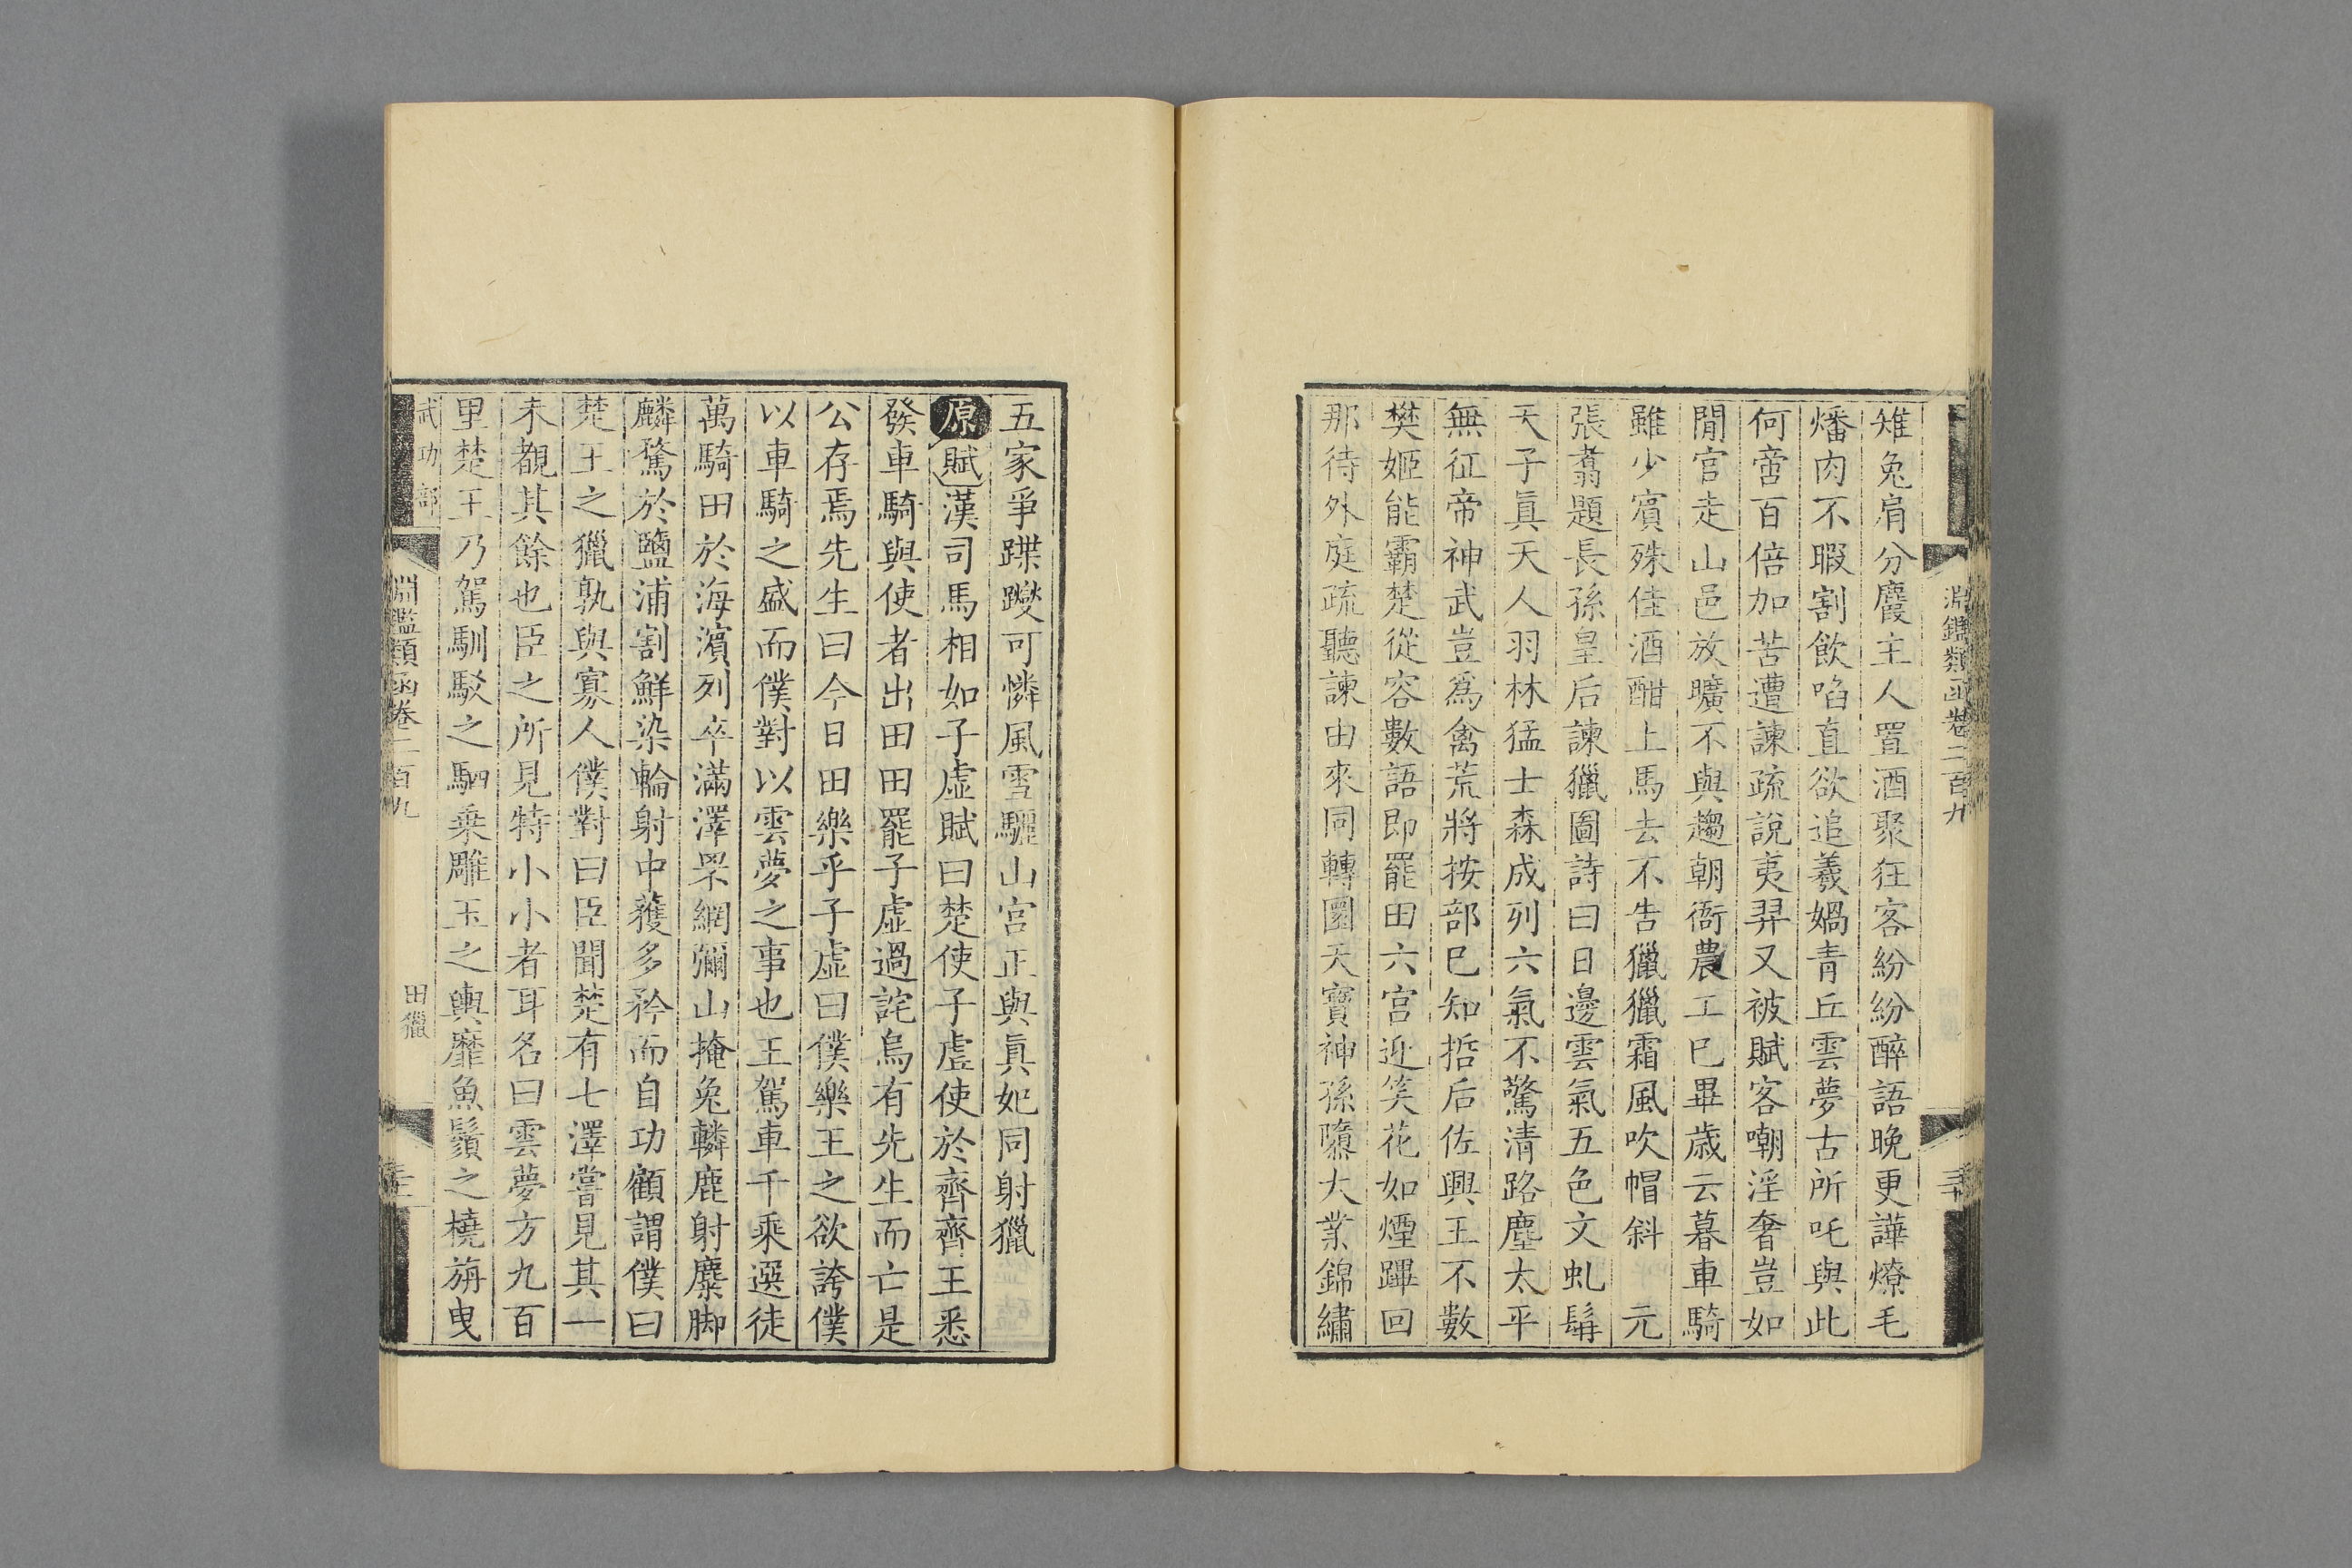 淵鑑類函卷二百九
雉兔肩分麕主人置酒聚狂客紛紛醉語晚更譁燎毛
燔肉不暇割飲啗直欲追羲媧青丘雲夢古所吒與此
何啻百倍加苦遭諫疏說夷羿又被賦客嘲淫奢豈如
閒官走山邑放曠不與趨朝衙農工巳畢歲云暮車騎
雖少賓殊佳酒酣上馬去不告獵獵霜風吹帽斜　元
張翥題長孫皇后諫獵圖詩曰日邊雲氣五色文虬髯
天子眞天人羽林猛士森成列六氣不驚清路塵太平
無征帝神武豈爲禽荒將按部巳知哲后佐興王不數
樊姬能霸楚從容數語即罷田六宮迎笑花如煙蹕回
那待外庭疏聽諫由來同轉圜天寶神孫隳大業錦繡
五家爭蹀躞可憐風雪驪山宮正與眞妃同射獵
原賦漢司馬相如子虛賦曰楚使子虛使於齊齊王悉
發車騎與使者出田田罷子虛過詫烏有先生而亡是
公存焉先生曰今日田樂乎子虛曰僕樂王之欲誇僕
以車騎之盛而僕對以雲夢之事也王駕車千乘選徒
萬騎田於海濱列卒滿澤罘網彌山掩兔轔鹿射麋脚
麟騖於鹽浦割鮮染輪射中獲多矜而自功顧謂僕曰
楚王之獵孰與寡人僕對曰臣聞楚有七澤嘗見其一
未覩其餘也臣之所見特小小者耳名曰雲夢方九百
里楚王乃駕馴駁之駟乘雕玉之輿靡魚鬚之橈旃曳
武功部　淵鑑類函卷二百九　田獵